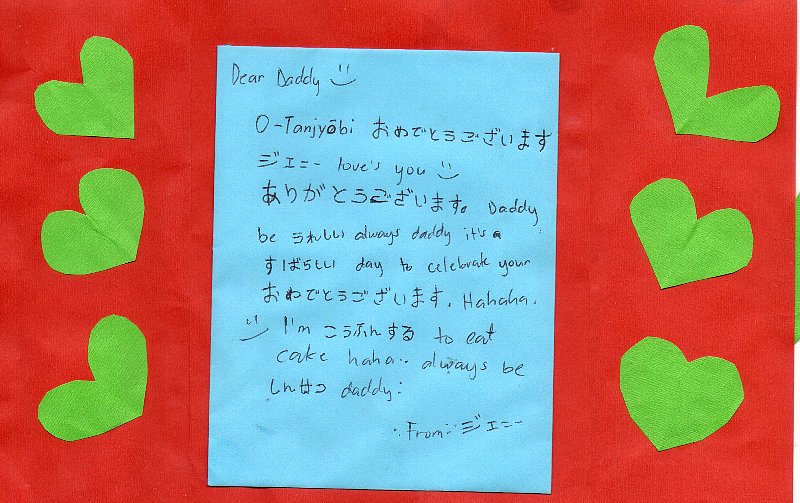 Dear Daddy
O-Tanjyōbi おめでとうございます
ジェニー love's you
ありがとうございます。Daddy
be うれしい always daddy it's a
すばらしい day to celebrate your
おめでとうございます. Hahaha.
I'm こうふんする to eat
cake haha.. always be
しんせつ daddy:
.From: ジェニー